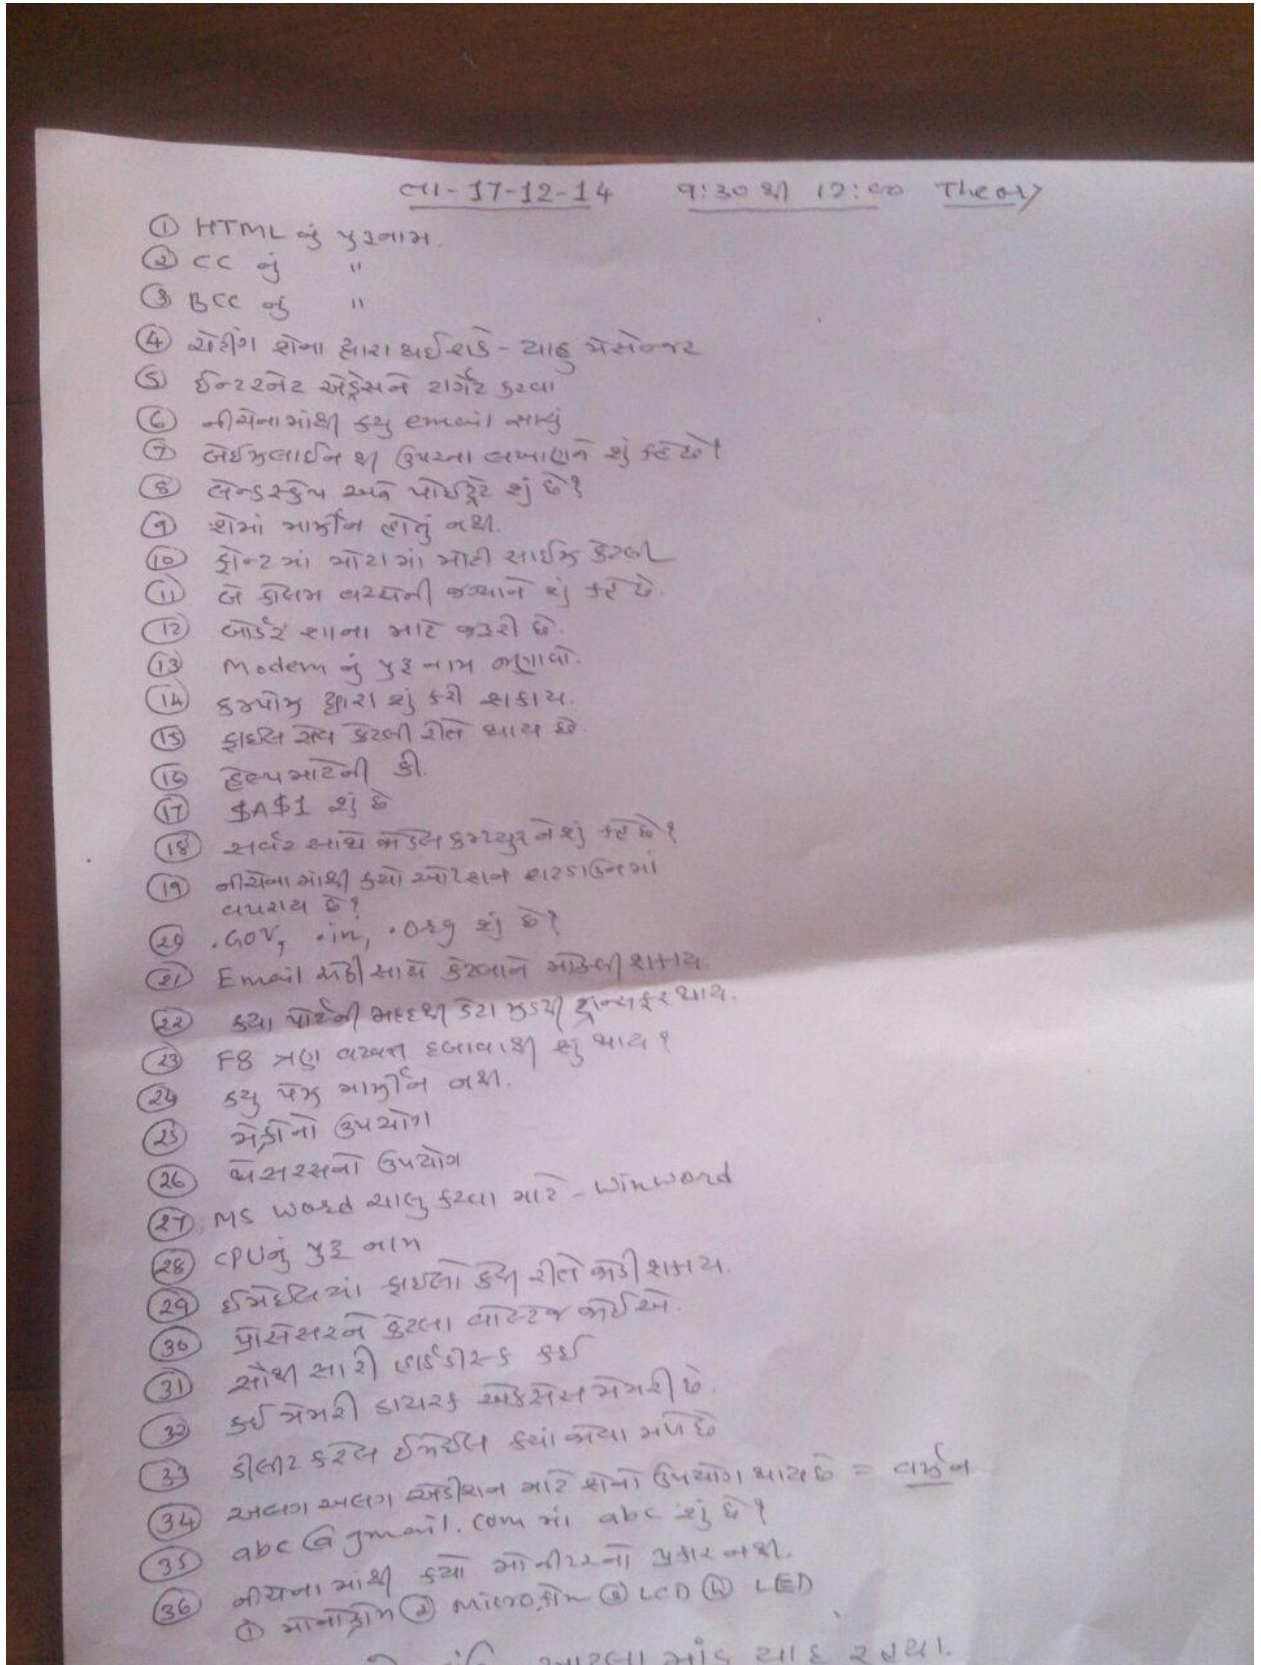 તા-17-12-14 9:30 થી 12:00 Theory
① HTML નું પુરૂનામ.
② CC નું "
③ BCC નું "
④ ચેટીંગ શેના દ્વારા થઈ શકે - યાહુ મેસેન્જર
⑤ ઈન્ટરનેટ એડ્રેસને ટાર્ગેટ કરવા
⑥ નીચેનામાંથી કયુ email સાચું
⑦ બેઈઝલાઈન થી ઉપરના લખાણને શું કહે છે?
⑧ લેન્ડસ્કેપ અને પોર્ટ્રેટ શું છે?
⑨ શેમાં માર્જીન હોતું નથી.
⑩ ફોન્ટમાં મોટામાં મોટી સાઈઝ કેટલી
⑪ બે કોલમ વચ્ચેની જગ્યાને શું કહે છે.
⑫ બોર્ડર શાના માટે જરૂરી છે.
⑬ Modem નું પુરૂ નામ જણાવો.
⑭ કમ્પોઝ દ્વારા શું કરી શકાય.
⑮ ફાઈલ સેવ કેટલી રીતે થાય છે.
⑯ હેલ્પ માટેની કી.
⑰ $A$1 શું છે
⑱ સર્વર સાથે જોડેલ કમ્પ્યુટરને શું કહે છે?
⑲ નીચેનામાંથી કયો ઓપ્શન શટડાઉનમાં
વપરાય છે?
⑳ .GOV, .in, .Org શું છે?
㉑ Email એકી સાથે કેટલાને મોકલી શકાય.
㉒ કયા પોર્ટની મદદથી ડેટા ઝડપી ટ્રાન્સફર થાય.
㉓ F8 ત્રણ વખત દબાવાથી શું થાય?
㉔ કયુ પેજ માર્જીન નથી.
㉕ મેક્રોનો ઉપયોગ
㉖ થેસરસનો ઉપયોગ
㉗ MS Word ચાલુ કરવા માટે - Winword
㉘ CPUનું પુરૂ નામ
㉙ ઈમેઈલમાં ફાઈલો કઈ રીતે જોડી શકાય.
㉚ પ્રોસેસરને કેટલા વોલ્ટેજ જોઈએ.
㉛ સૌથી સારી હાર્ડડીસ્ક કઈ
㉜ કઈ મેમરી ડાયરેક્ટ એક્સેસ મેમરી છે.
㉝ ડીલીટ કરેલ ઈમેઈલ ક્યાં જોવા મળે છે
㉞ અલગ અલગ એડીશન માટે શેનો ઉપયોગ થાય છે = વર્ઝન
㉟ abc@gmail.com માં abc શું છે?
㊱ નીચેના માંથી કયો મોનીટરનો પ્રકાર નથી.
① મોનોક્રોમ ② Microફોન ③ LCD ④ LED
આટલા માંડ યાદ રહયા.